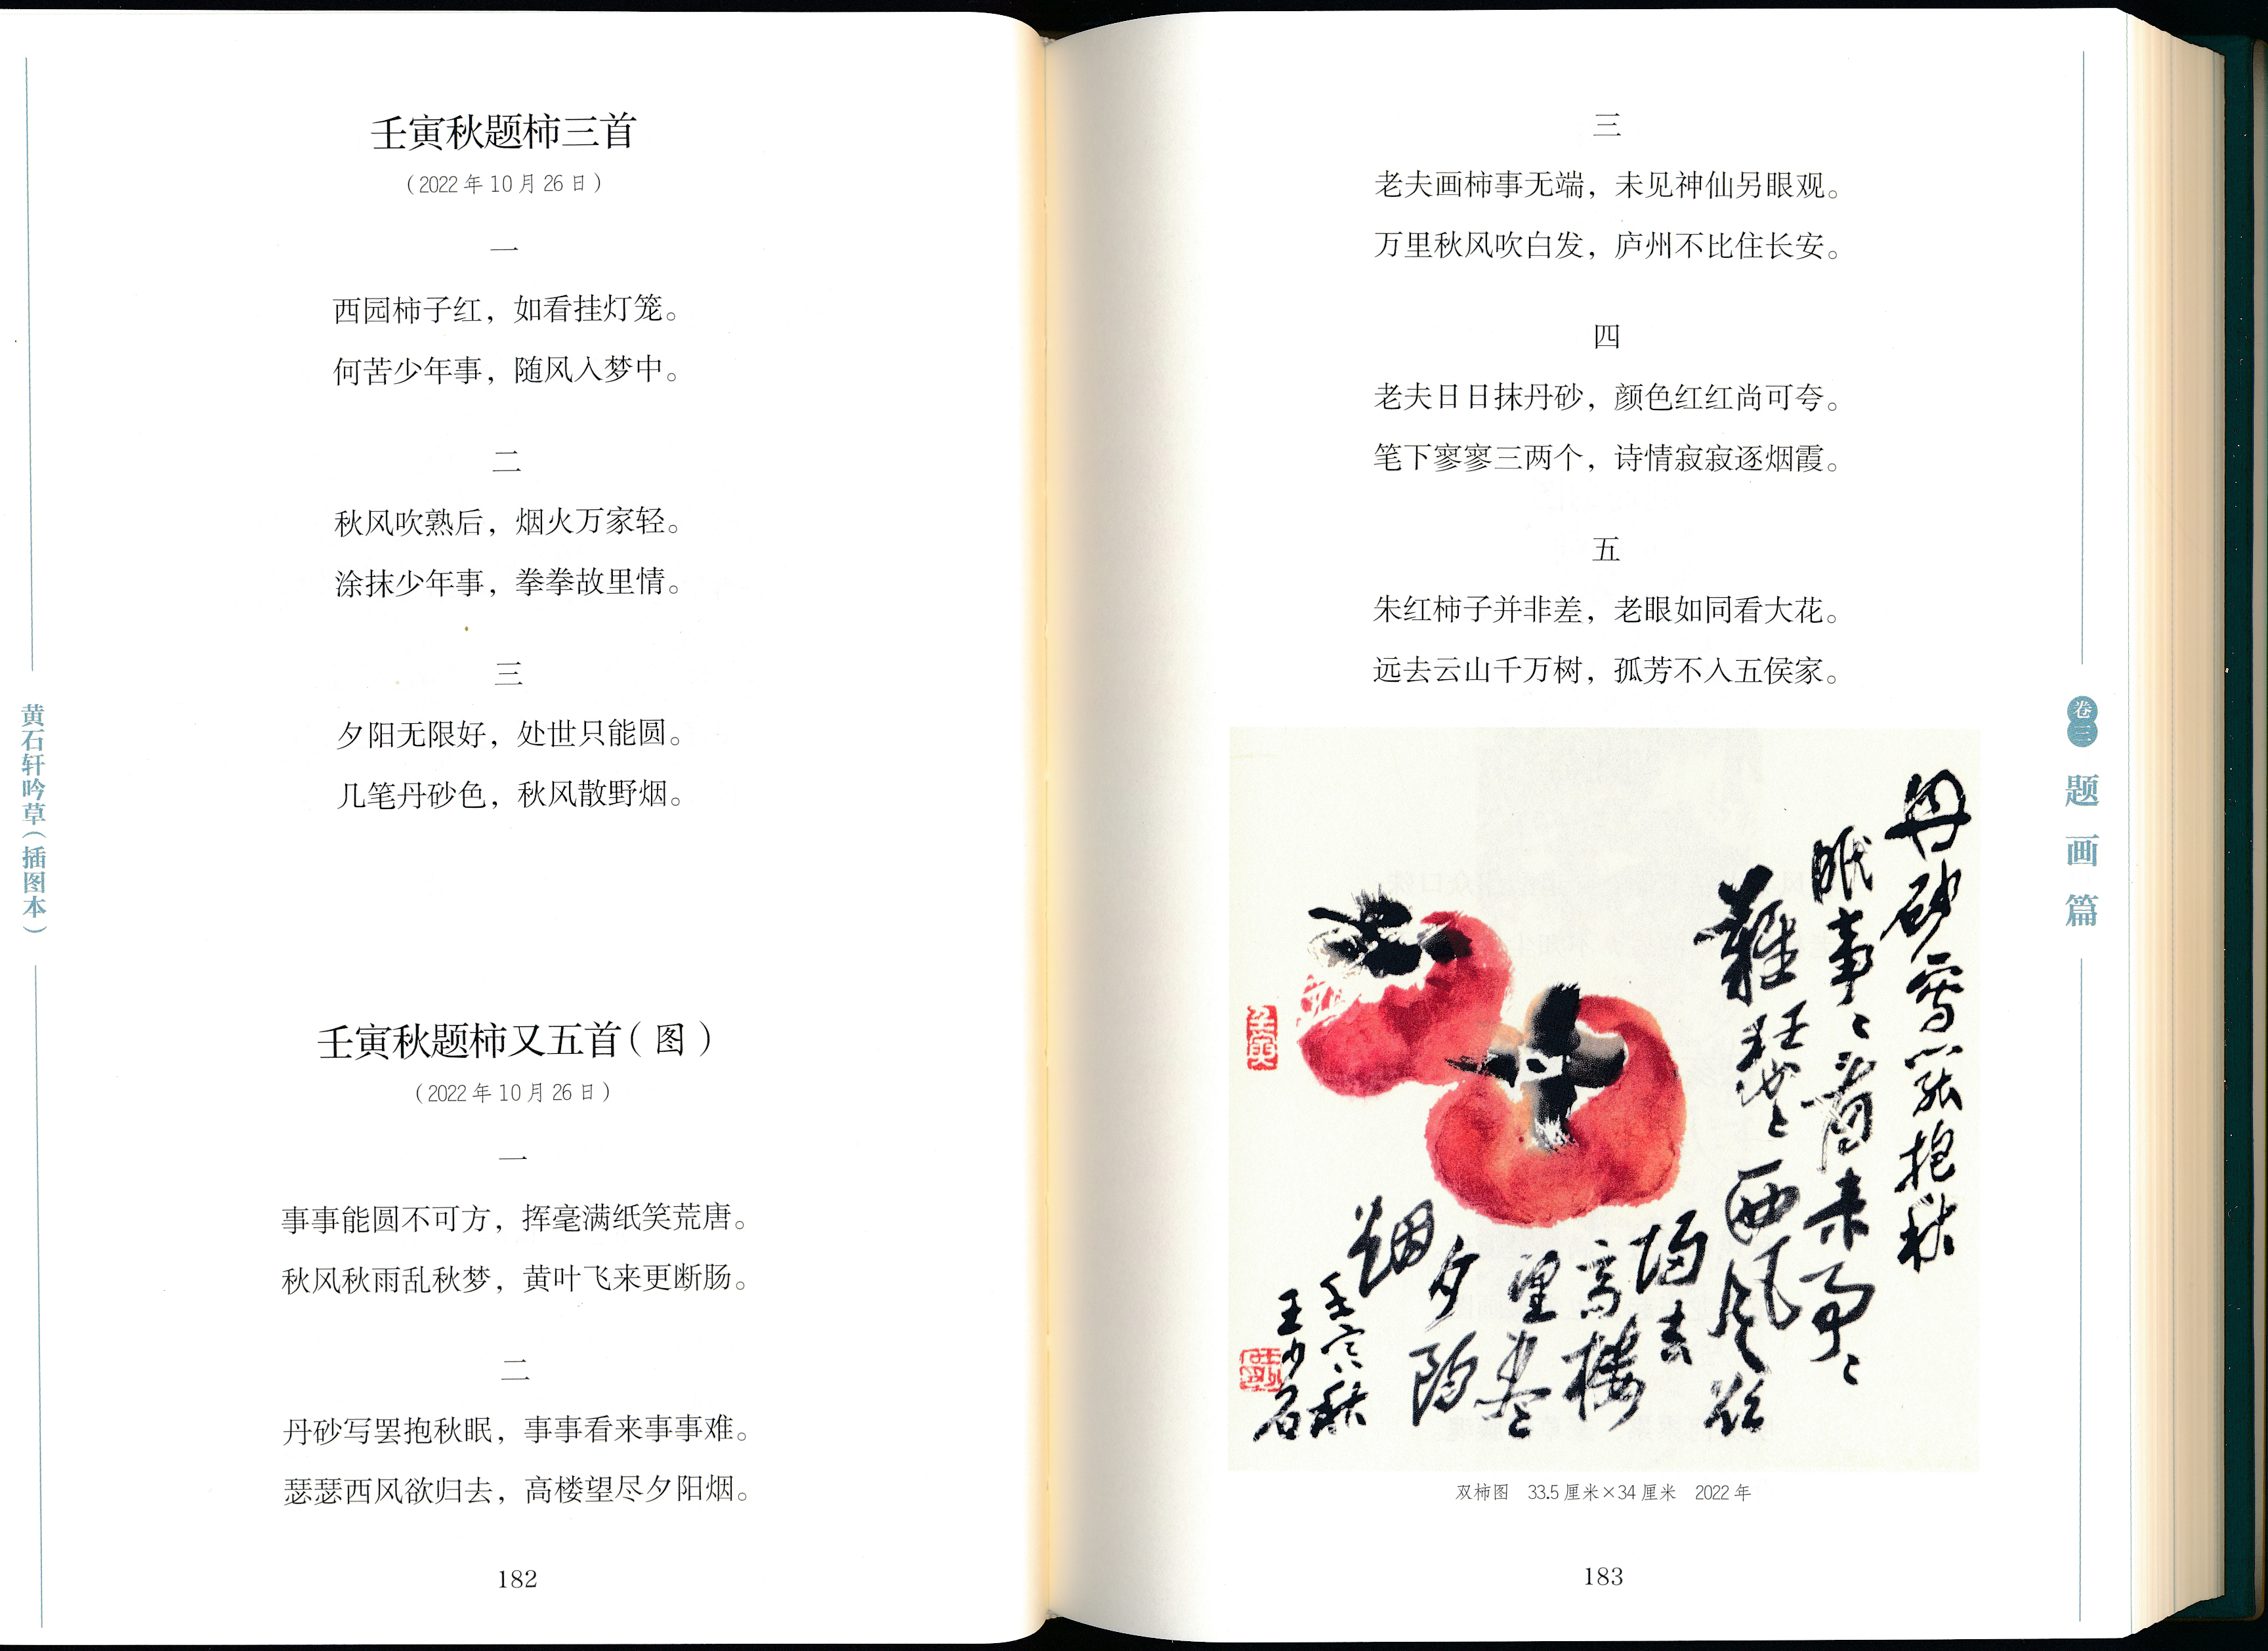 黄石轩吟草（插图本）
壬寅秋题柿三首
（2022年10月26日）
一
西园柿子红，如看挂灯笼。
何苦少年事，随风入梦中。
二
秋风吹熟后，烟火万家轻。
涂抹少年事，拳拳故里情。
三
夕阳无限好，处世只能圆。
几笔丹砂色，秋风散野烟。
壬寅秋题柿又五首（图）
（2022年10月26日）
一
事事能圆不可方，挥毫满纸笑荒唐。
秋风秋雨乱秋梦，黄叶飞来更断肠。
二
丹砂写罢抱秋眠，事事看来事事难。
瑟瑟西风欲归去，高楼望尽夕阳烟。
182
三
老夫画柿事无端，未见神仙另眼观。
万里秋风吹白发，庐州不比住长安。
四
老夫日日抹丹砂，颜色红红尚可夸。
笔下寥寥三两个，诗情寂寂逐烟霞。
五
朱红柿子并非差，老眼如同看大花。
远去云山千万树，孤芳不入五侯家。
丹砂写罢抱秋
眠事〻看来事〻
难瑟〻西风欲
归去
高楼
望尽
夕阳
烟
壬寅秋
王少石
壬寅
双柿图 33.5厘米×34厘米 2022年
183
卷三 题画篇